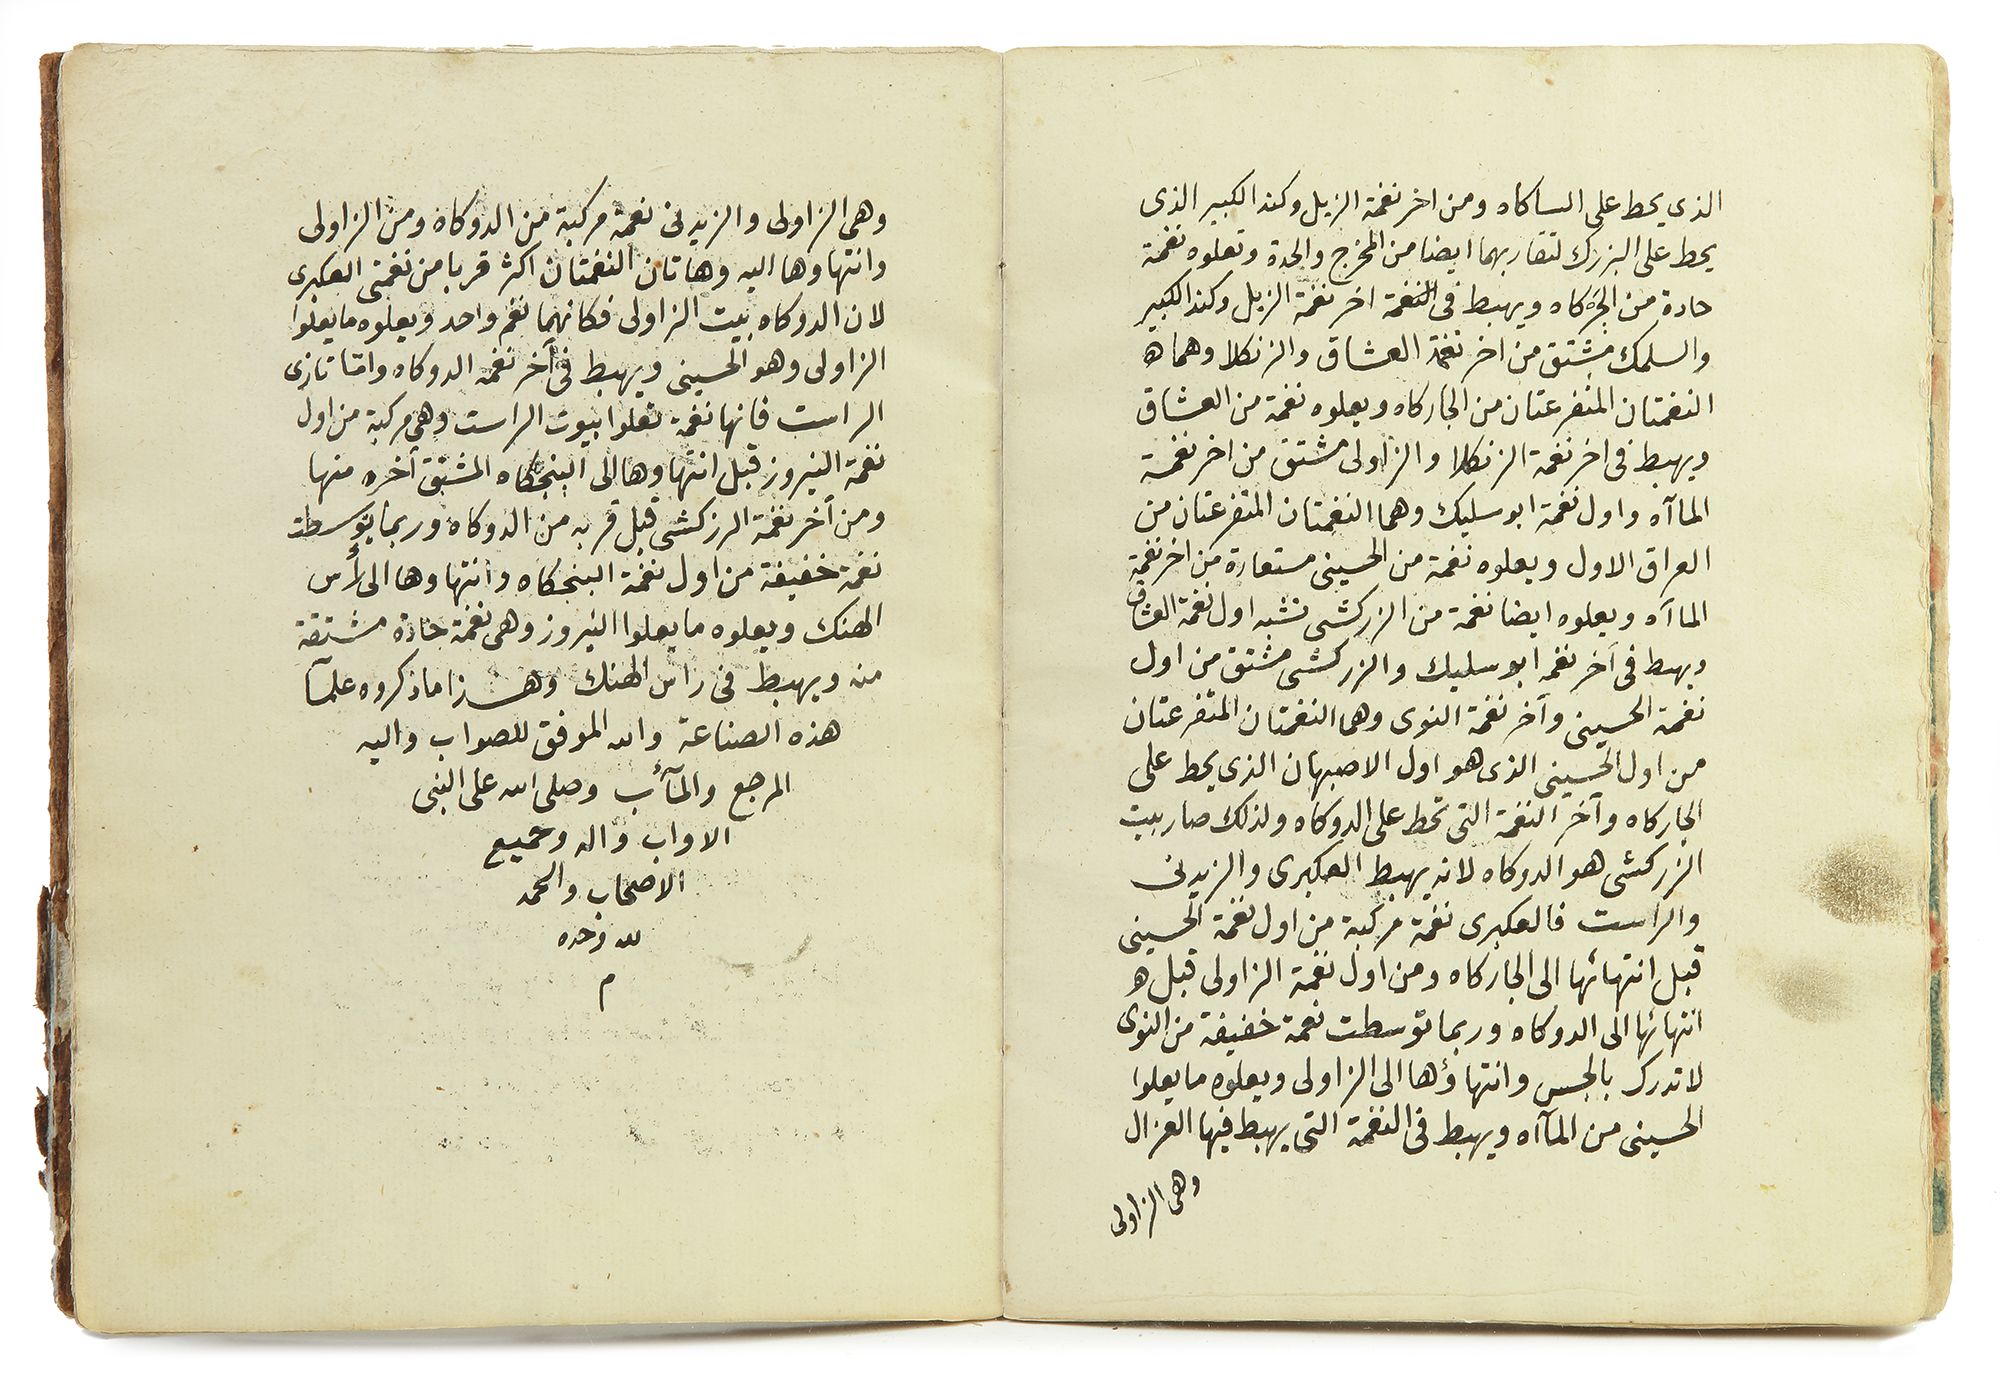 الذى يحط على الساكاه ومن اخر نغمة الزيل وكند الكبير الذى
يحط على البزرك لتقاربهما ايضا من المخرج والحدة وتعلوه نغمة
حادة من الجركاه ويهبط فى النغمة اخر نغمة الزيل وكند الكبير
والسلمك مشتق من اخر نغمة العشاق والزنكلا وهما ه
النغمتان المتفرعتان من الجاركاه ويعلوه نغمة من العشاق
ويهبط فى اخر نغمة الزنكلا والزاولى مشتق من اخر نغمة
الماآه واول نغمة ابوسليك وهما النغمتان المتفرعتان من
العراق الاول ويعلوه نغمة من الحسينى مستعارة من اخر نغمة
الماآه ويعلوه ايضا نغمة من الزركشى تشبه اول نغمة العشاق
ويهبط فى آخر نغمه ابوسليك والزركشى مشتق من اول
نغمة الحسينى وآخر نغمة النوى وهما النغمتان المتفرعتان
من اول الحسينى الذى هو اول الاصبهان الذى يحط على
الجاركاه وآخر النغمة التى تحط على الدوكاه ولذلك صار بيت
الزركشى هو الدوكاه لانه يهبط العكبرى والزيدنى
والراست فالعكبرى نغمة مركبة من اول نغمة الحسينى
قبل انتهائها الى الجاركاه ومن اول نغمة الزاولى قبل ه
انتهائها الى الدوكاه وربما توسطت نغمة خفيفة من النوى
لا تدرك بالجس وانتهاؤها الى الزاولى ويعلوه ما يعلوا
الحسينى من الماآه ويهبط فى النغمة التى يهبط فيها الغزال
وهى الزاولى
وهى الزاولى والزيدنى نغمة مركبة من الدوكاه ومن الزاولى
وانتهاوها اليه وهاتان النغمتان اكثر قربا من نغمتى العكبرى
لان الدوكاه بيت الزاولى فكانهما نغم واحد ويعلوه ما يعلوا
الزاولى وهو الحسينى ويهبط فى آخر نغمه الدوكاه وامّا نازى
الراست فانها نغمة تعلوا بيوت الراست وهى مركبة من اول
نغمة النيروز قبل انتهاوها الى البنجكاه المشتق آخره منها
ومن آخر نغمة الرزكشى قبل قربه من الدوكاه وربما توسطت
نغمة خفيفة من اول نغمة البنجكاه وانتهاوها الى رأس
الهنك ويعلوه ما يعلوا النيروز وهى نغمة حادة مشتقة
منه ويهبط فى راس الهنك وهذا ما ذكروه علمآ
هذه الصناعة والله الموفق للصواب واليه
المرجع والمآب وصلى الله على النبى
الاواب واله وجميع
الاصحاب والحمد
لله وحده
م